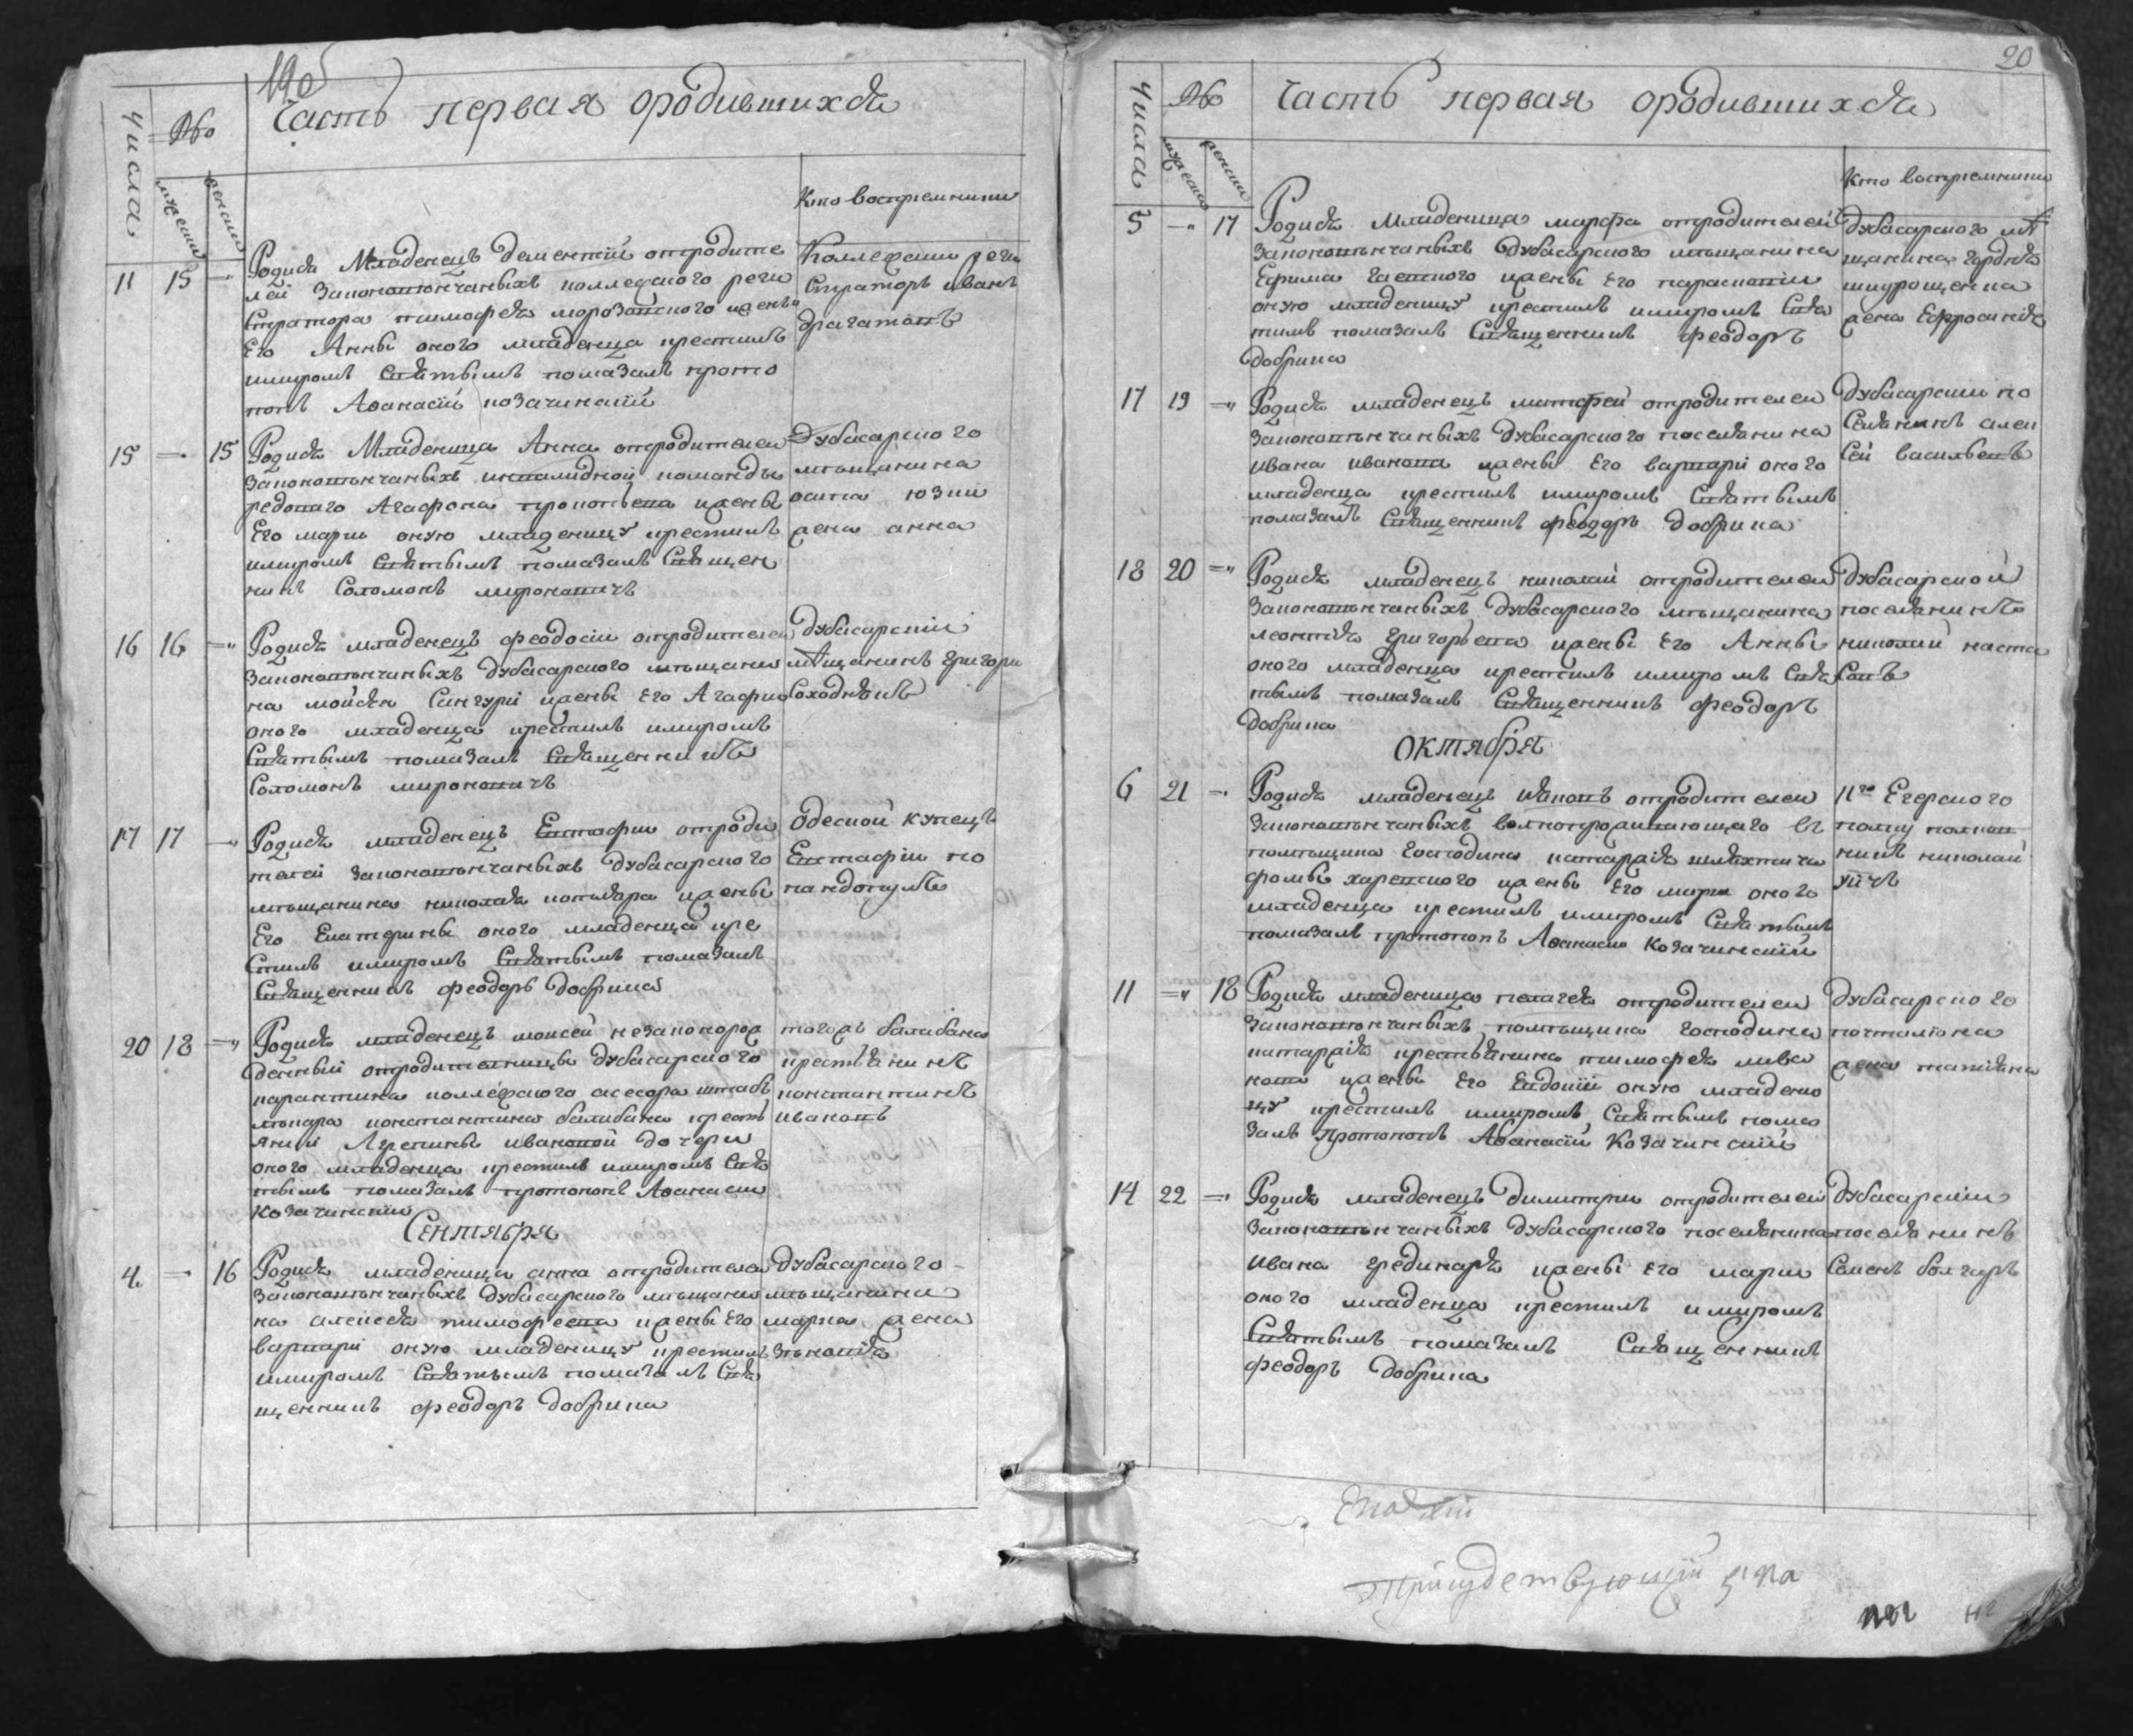 19об
Числа
№
Часть первая ородившихся
мужеска
женска
Кто восприемники
11 15 -
Родися Младенецъ Дементий отродите
лей Законовѣнчанныхъ коллежского реги
Стратора тимофея морозовского ижены
Его Анны оного младенца крестилъ
имиромъ Святымъ помазалъ прото
попъ Афанасий козачинский
Коллежский реги
Страторъ иванъ
драгатовъ
15 - 15
Родися Младеница Анна отродителей
Законовѣнчанныхъ инвалидной команды
редоваго Агафона прокопьева ижены
Его марии оную младеницу крестилъ
имиромъ Святымъ помазалъ Священ
никъ Соломонъ мировичъ
Дубасарского
мѣщанина
осипа юзви
жена анна
16 16 -
Родися младенецъ феодосий отродителей
Законовѣнчанныхъ дубасарского мѣщани
на мойсея Сингури ижены Его Агафии
оного младенца крестилъ имиромъ
Святымъ помазалъ Священникъ
Соломонъ мироновичъ
Дубасарский
мѣщанинъ григори
Соходнякъ
17 17 -
Родися младенецъ Евстафии отроди
телей Законовѣнчанныхъ дубасарского
мѣщанина николая котляра ижены
Его Екатерины оного младенца кре
Стилъ имиромъ Святымъ помазалъ
Священникъ феодоръ Добрика
Одеской купецъ
Евстафии по
пандопулъ
20 18 -
Родися младенецъ моисей незаконорож
денный отродителницы дубасарского
карантина коллежского асесора штабъ
лѣкара константина балабана крестъ
янки Агрепины ивановой дочери
оного младенца крестилъ имиромъ Свя
тымъ помазалъ протопопъ Афанасии
козачинский
тогожъ балабана
крестьянинъ
константинъ
ивановъ
Сентября
4 - 16
Родися младеница анна отродителей
Законовѣнчанныхъ дубасарского мѣщани
на алексея тимофеева ижены Его
варвари оную младеницу крестилъ
имиромъ Святымъ помазалъ Свя
щенникъ феодоръ Добрика
Дубасарского
мѣщанина
марка жена
зѣновия
20
Числа
№
Часть первая ородившихся
мужеска
женска
Кто восприемники
5 - 17
Родися Младеница марфа отродителей
Законовѣнчанныхъ дубасарского мѣщанина
Ефима Гаевского ижены Его параскевии
оную младеницу крестилъ имиромъ Свя
тымъ помазалъ Священникъ феодоръ
Добрика
Дубасарского мѣ
щанина гордея
жена Ефросиния
17 19 -
Родися младенецъ матфей отродителей
Законовѣнчанныхъ дубасарского поселянина
ивана иванова ижены Его варвари оного
младенца крестилъ имиромъ Святымъ
помазалъ Священникъ феодоръ Добрика
Дубасарский по
Селянинъ алек
Сей васильевъ
18 20 -
Родися младенецъ николай отродителей
Законовѣнчанныхъ дубасарского мѣщанина
леонтия григорьева ижены Его Анны
оного младенца крестилъ имиромъ Свя
тымъ помазалъ Священникъ феодоръ
Добрика
Дубасарской
поселянинъ
николай наста
Совъ
Октября
6 21 -
Родися младенецъ иаковъ отродителей
Законовѣнчанныхъ волнопроживающаго въ
помѣщика Господина катаржия шляхтича
фомы харевского ижены Его марии оного
младенца крестилъ имиромъ Святымъ
помазалъ протопопъ Афанасии Козачинский
11го Егерского
полку полков
никъ николай
11 - 18
Родися младеница пелагея отродителей
Законовѣнчанныхъ помѣщика Господина
катаржия крестьянина тимофея
ижены Его Евдокии оную младени
цу крестилъ имиромъ Святымъ пома
залъ протопопъ Афанасий Козачинский
Дубасарского
почталиона
жена татияна
14 22 -
Родися младенецъ Димитрий отродителей
Законовѣнчанныхъ дубасарского поселянина
ивана грединаря ижены Его марии
оного младенца крестилъ имиромъ
Святымъ помазалъ Священникъ
феодоръ Добрика
Дубасарский
поселянинъ
Семенъ болгаръ